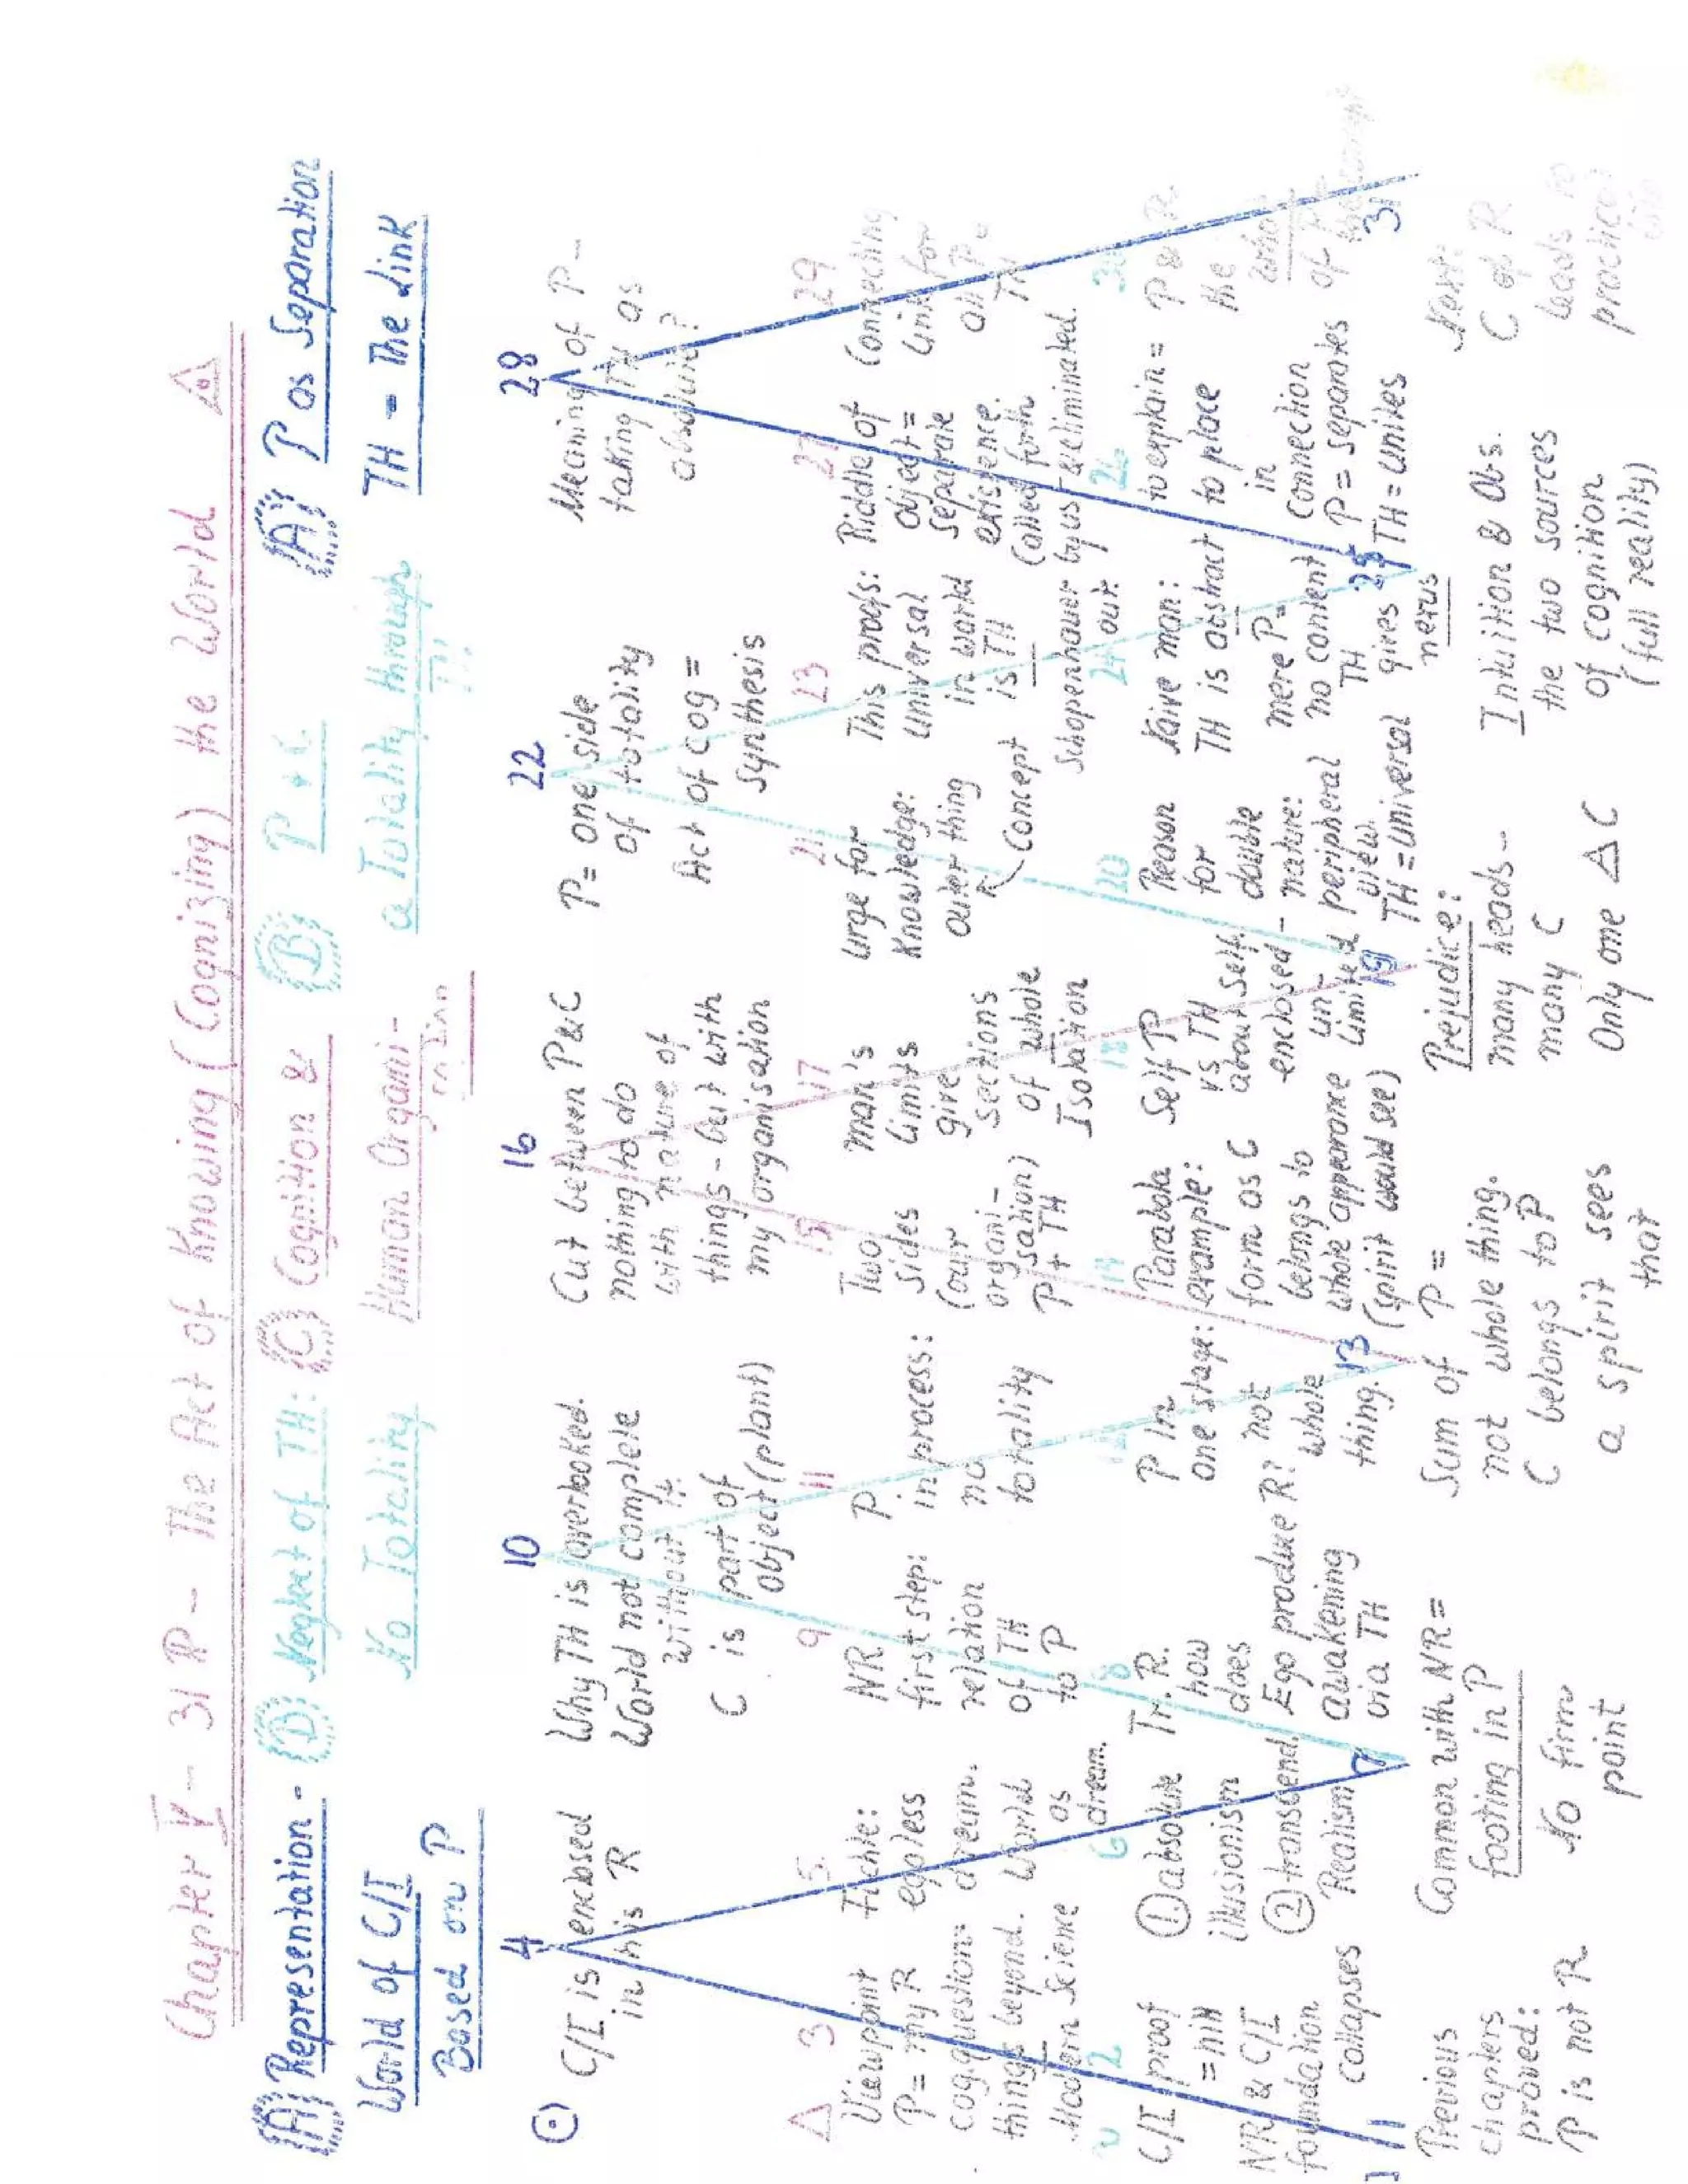 Chapter V - 31 P - The Act of Knowing (Cognizing) the World
(A) Representation - (D) Neglect of TH: (C) Cognition & (B) P + C (A) P as Separation
World of C/I No Totality Human Organi- a Totality through TH - The Link
Based on P
4
C/I is enclosed
in his R
10
Why TH is overlooked.
World not complete
without it.
C is part of
object (plant)
16
Cut between P&C
nothing to do
with nature of
things - but with
my organisation
22
P = one side
of totality
Act of cog =
Synthesis
28
Meaning of P -
taking TH as
absolute?
3
Viewpoint
P = my R
cog question:
things beyond.
Modern Science
5
Fichte:
egoless
dream.
World
as
dream.
9
NR
first step:
relation
of TH
to P
11
P
in process:
no
totality
15
Two
sides
(our
organi-
sation)
P + TH
17
man's
Limits
give
sections
of whole
Isolation
21
Urge for
Knowledge:
outer thing
Concept
23
This proofs:
universal
in world
is TH
Schopenhauer
out.
27
Riddle of
object =
separate
existence.
Called forth
by us & eliminated.
29
Connecting
Link for
all P.
TH
2
C/I proof
= nih
NR & C/I
foundation
collapses
6
① absolute
illusionism
② transend.
Realism
8
Tr. R.
how
does
Ego produce R?
awakening
via TH
P in
one stage:
not
whole
thing.
14
Parabola
example:
form as C
belongs to
whole apperance
(spirit would see)
18
Self P
vs TH
about self.
enclosed -
un-
limited
20
Reason
for
double
nature:
peripheral
view.
TH = universal
24
Naive man:
TH is abstract
mere P =
no content
TH
gives
nexus
26
to explain =
to place
in
connection
P = separates
TH = unites
30
P & R
the
whole
of
1
Previous
chapters
proved:
P is not R
7
Common with NR =
footing in P
No firm
point
13
Sum of P =
not whole thing.
C belongs to P
a spirit sees
that
19
Prejudice:
many heads -
many C
Only one △ C
25
Intuition & Obs.
the two sources
of cognition
(full reality)
31
Next:
C of R
Leads to
practical